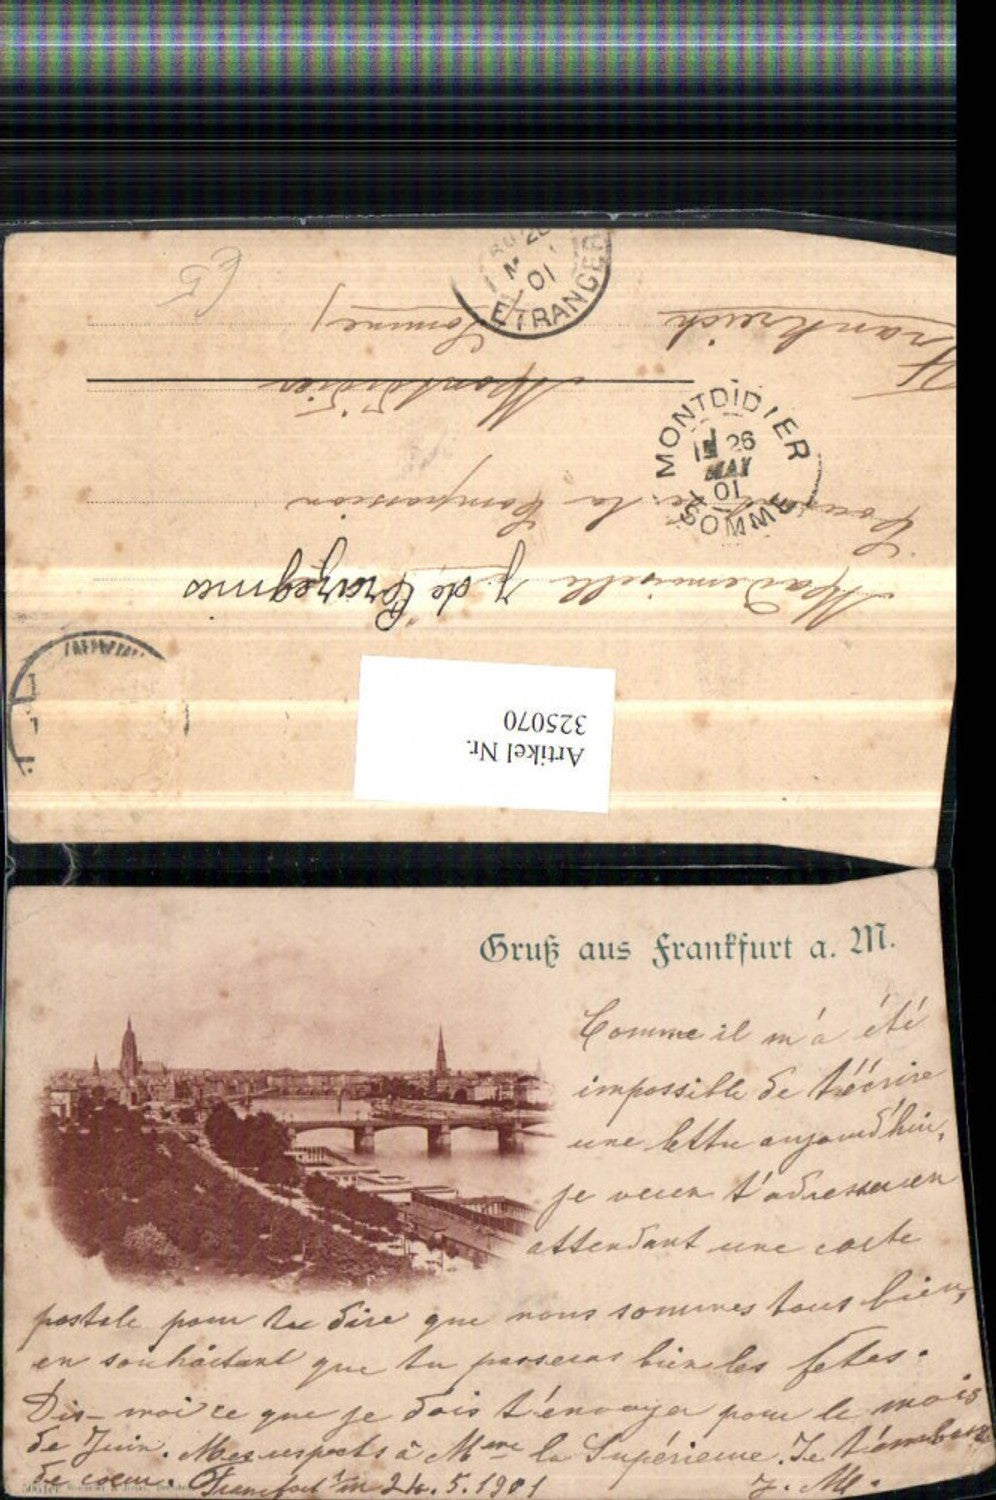 Frankreich
Somme)
Montdidier
Couvent de la Compassion
Mademoiselle J. de
65
ETRANGER
01
MONTDIDIER
26
MAY
01
SOMME
Artikel Nr.
325070
Gruß aus Frankfurt a. M.
Comme il m'a été
impossible de t'écrire
une lettre aujourd'hui,
je veux t'adresser en
attendant une carte
postale pour te dire que nous sommes tous bien,
en souhaitant que tu passeras bien les fêtes.
Dis-moi ce que je dois t'envoyer pour le mois
de Juin. Mes respects à Mme la Supérieure. Je t'embrasse
de coeur. Francfort s/m 24.5.1901 J. M.